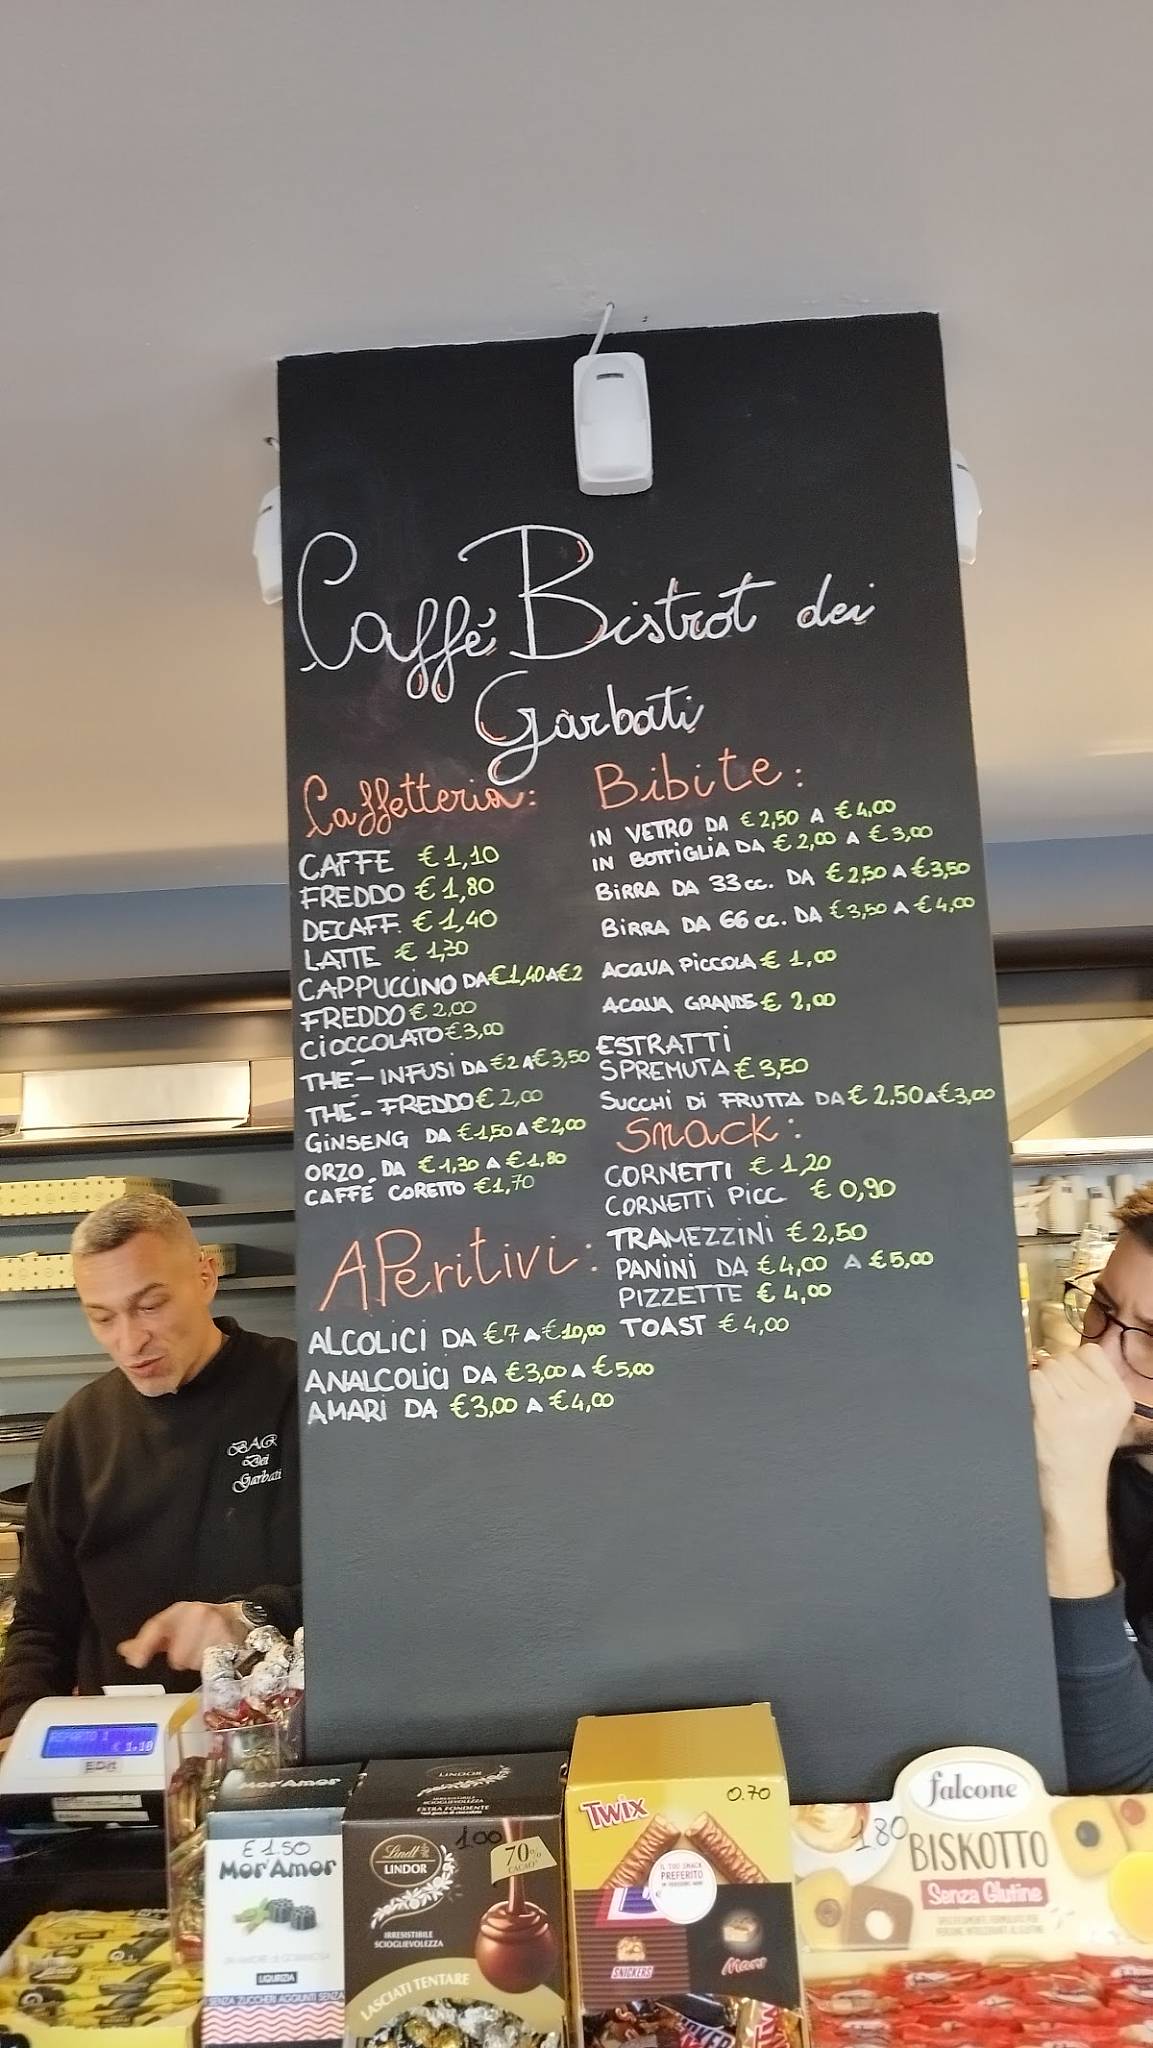 Caffé Bistrot dei
Garbati
Caffetteria:
CAFFE € 1,10
FREDDO € 1,80
DECAFF. € 1,40
LATTE € 1,30
CAPPUCCINO DA €1,40 A €2
FREDDO € 2,00
CIOCCOLATO € 3,00
THE - INFUSI DA €2 A €3,50
THE - FREDDO € 2,00
GINSENG DA €1,50 A €2,00
ORZO DA €1,30 A €1,80
CAFFÉ CORETTO €1,70
APeritivi:
ALCOLICI DA €7 A €10,00
ANALCOLICI DA €3,00 A €5,00
AMARI DA €3,00 A €4,00
Bibite:
IN VETRO DA € 2,50 A € 4,00
IN BOTTIGLIA DA € 2,00 A € 3,00
BIRRA DA 33 cc. DA € 2,50 A €3,50
BIRRA DA 66 cc. DA € 3,50 A € 4,00
ACQUA PICCOLA € 1,00
ACQUA GRANDE € 2,00
ESTRATTI
SPREMUTA € 3,50
SUCCHI DI FRUTTA DA € 2.50 A €3,00
Smack:
CORNETTI € 1,20
CORNETTI PICC € 0,90
TRAMEZZINI € 2,50
PANINI DA € 4,00 A € 5,00
PIZZETTE € 4,00
TOAST € 4,00
BAR
Dei
Garbati
REPARTO 1
€ 1.10
Mor'Amor
£ 1.50
Mor'Amor
LIQUIRIZIA
SENZA ZUCCHERI AGGIUNTI SENZA
LINDOR
IRRESISTIBILE
SCIOGLIEVOLEZZA
EXTRA FONDENTE
1.00
Lindt
LINDOR
70%
CACAO
IRRESISTIBILE
SCIOGLIEVOLEZZA
LASCIATI TENTARE
0.70
Twix
IL TUO SNACK
PREFERITO
SNICKERS
Mars
falcone
1.80
BISKOTTO
Senza Glutine